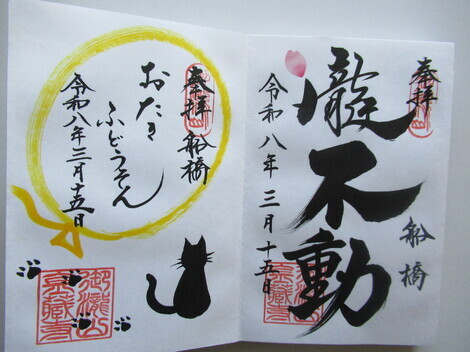 奉拝
船橋
瀧不動
令和八年三月十五日
奉拝 船橋
おたき
ふどうそん
令和八年三月十五日
御瀧山
金蔵寺